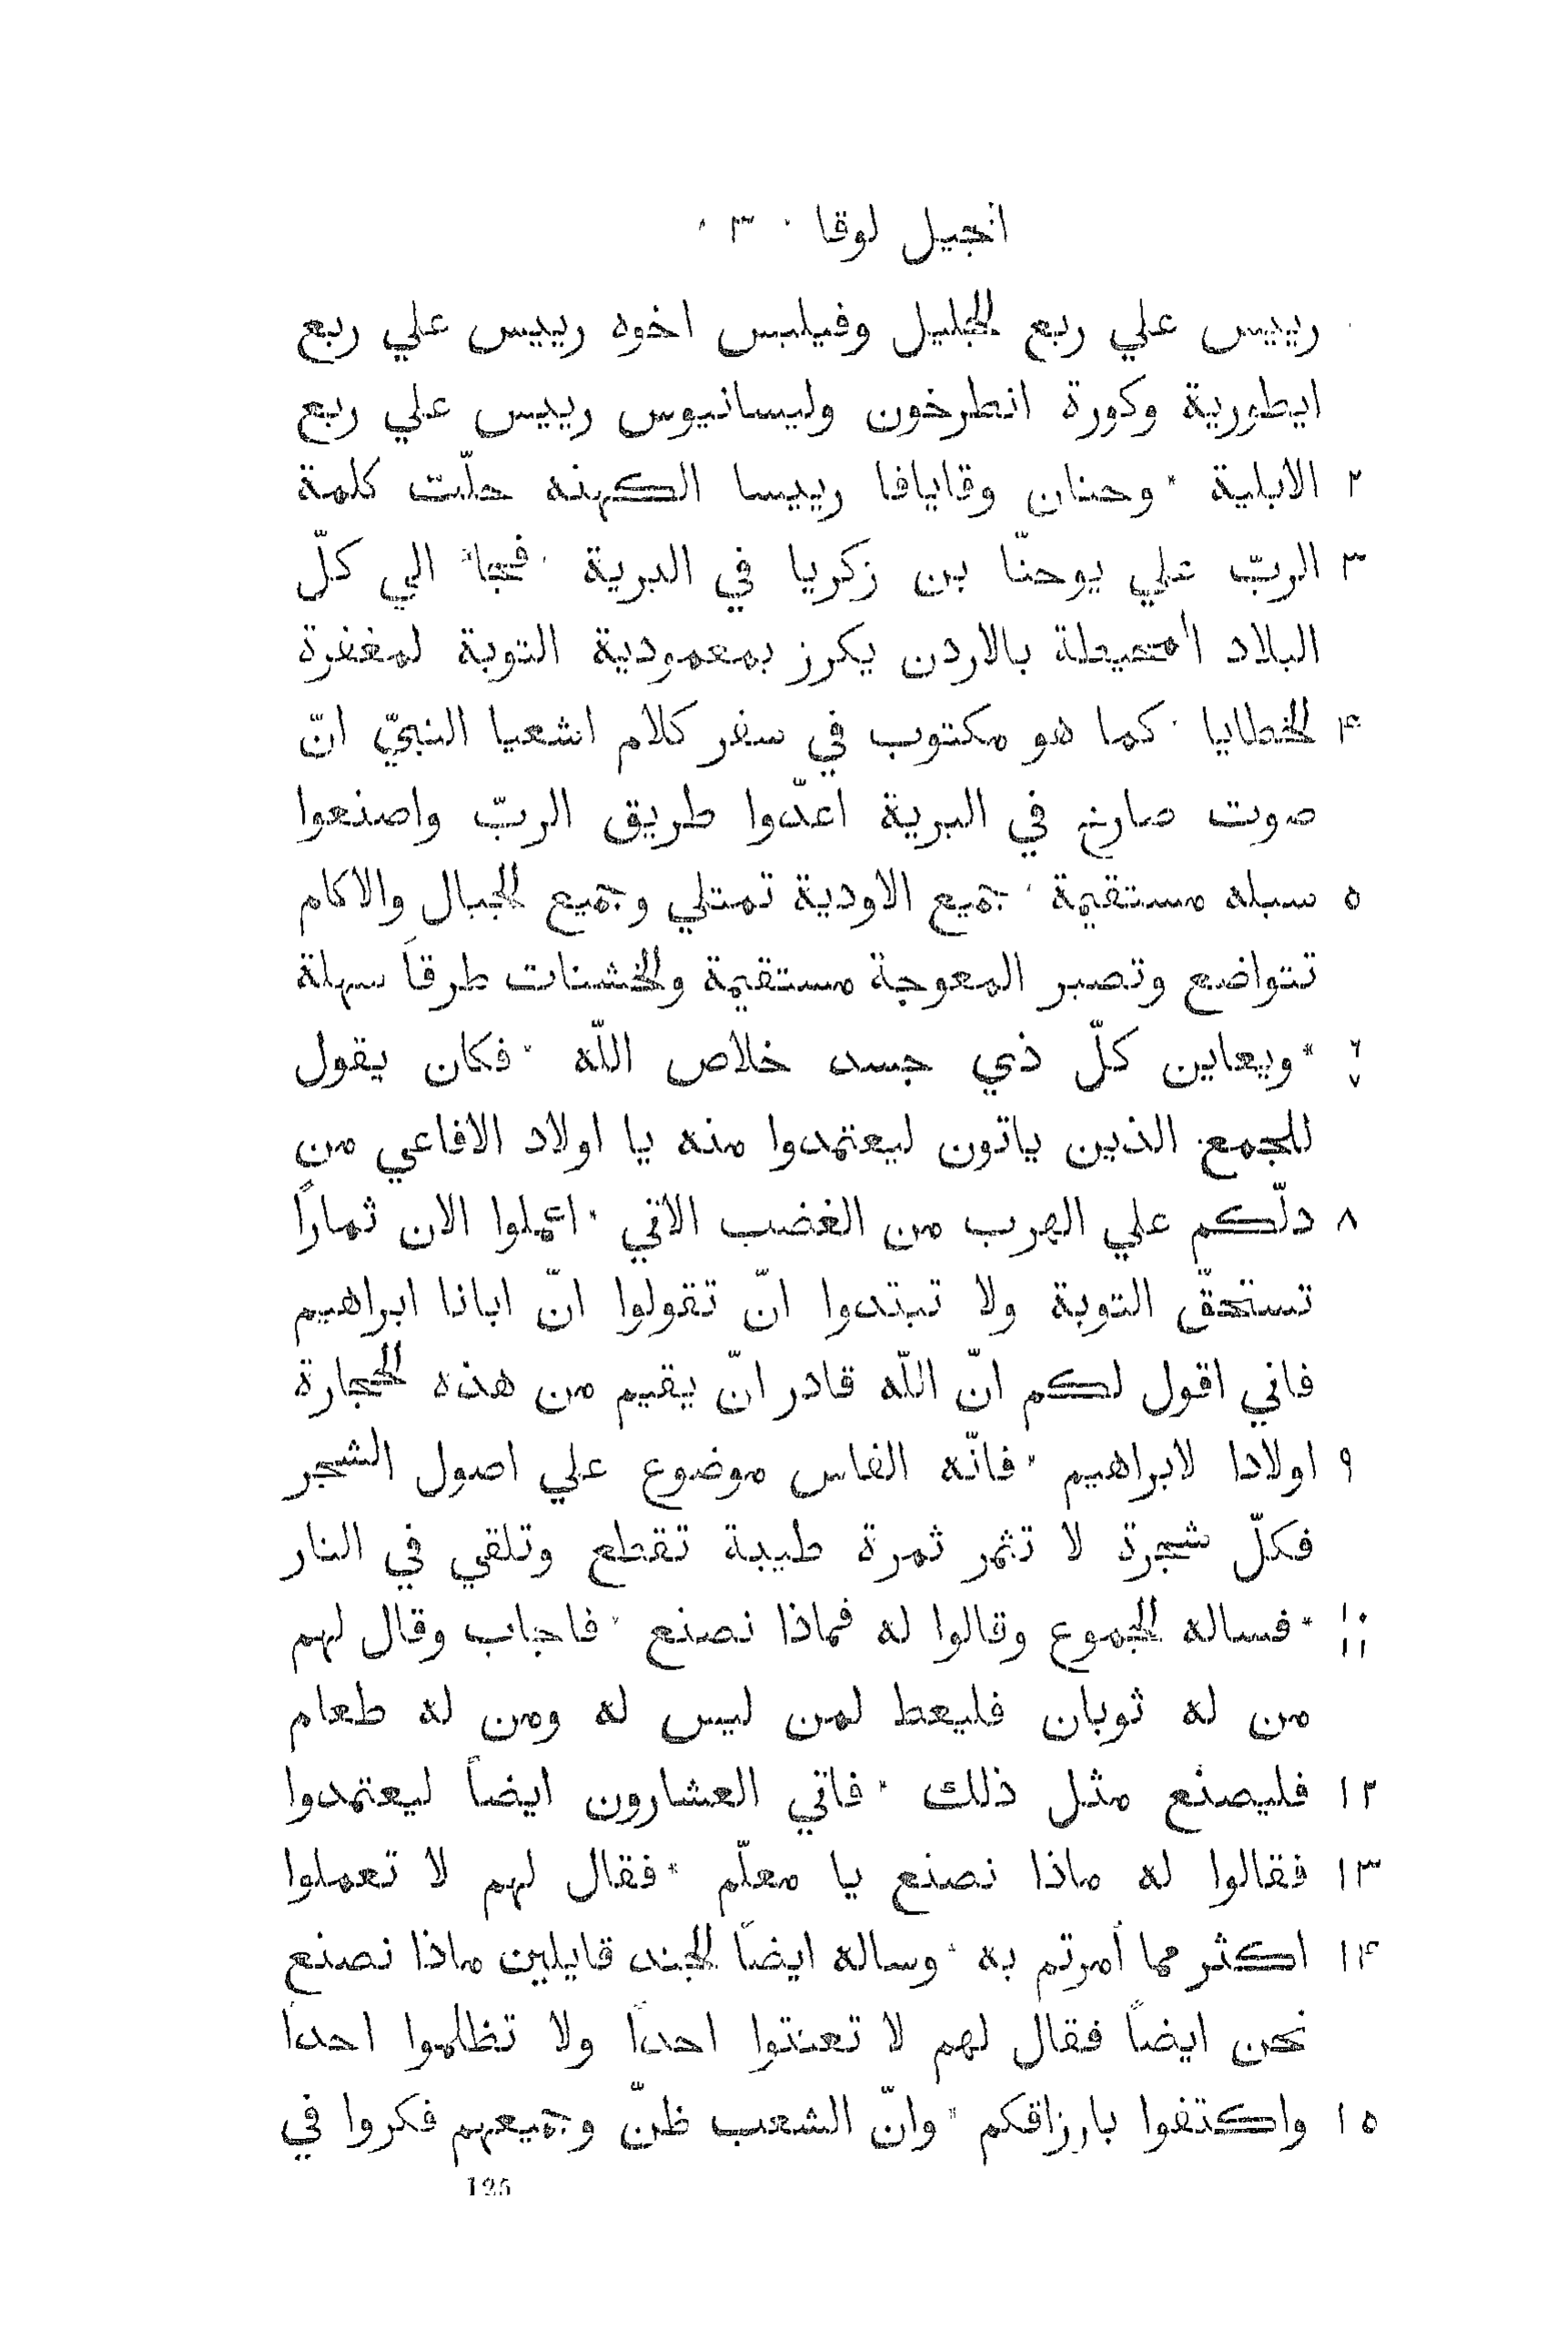 انجيل لوقا ٠ ٣ ٠
رييس علي ربع الجليل وفيلبس اخوه رييس علي ربع
ايطورية وكورة انطرخون وليسانيوس رييس علي ربع
٢ الابلية * وحنان وقايافا رييسا الكهنه حلّت كلمة
٣ الربّ علي يوحنّا بن زكريا في البرية * فجاء الي كلّ
البلاد المحيطة بالاردن يكرز بمعمودية التوبة لمغفرة
۴ الخطايا * كما هو مكتوب في سفر كلام اشعيا النبيّ انّ
صوت صارخ في البرية اعدّوا طريق الربّ واصنعوا
٥ سبله مستقيمة * جميع الاودية تمتلي وجميع الجبال والاكام
تتواضع وتصير المعوجة مستقيمة والخشنات طرقاً سهلة
٦ * ويعاين كلّ ذي جسد خلاص اللّه * فكان يقول
٧
للجمع الذين ياتون ليعتمدوا منه يا اولاد الافاعي من
٨ دلّكم علي الهرب من الغضب الاتي * اعملوا الان ثماراً
تستحقّ التوبة ولا تبتدوا انّ تقولوا انّ ابانا ابراهيم
فاني اقول لكم انّ اللّه قادر انّ يقيم من هذه الحجارة
٩ اولادا لابراهيم * فانّه الفاس موضوع علي اصول الشجر
فكلّ شجرة لا تثمر ثمرة طيبة تقطع وتلقي في النار
١٠ * فساله الجموع وقالوا له فماذا نصنع * فاجاب وقال لهم
١١
من له ثوبان فليعط لمن ليس له ومن له طعام
١٢ فليصنع مثل ذلك * فاتي العشارون ايضاً ليعتمدوا
١٣ فقالوا له ماذا نصنع يا معلّم * فقال لهم لا تعملوا
١۴ اكثر مما أمرتم به * وساله ايضاً الجند قايلين ماذا نصنع
نحن ايضاً فقال لهم لا تعنتوا احداً ولا تظلموا احداً
١٥ واكتفوا بارزاقكم * وانّ الشعب ظنّ وجميعهم فكروا في
125